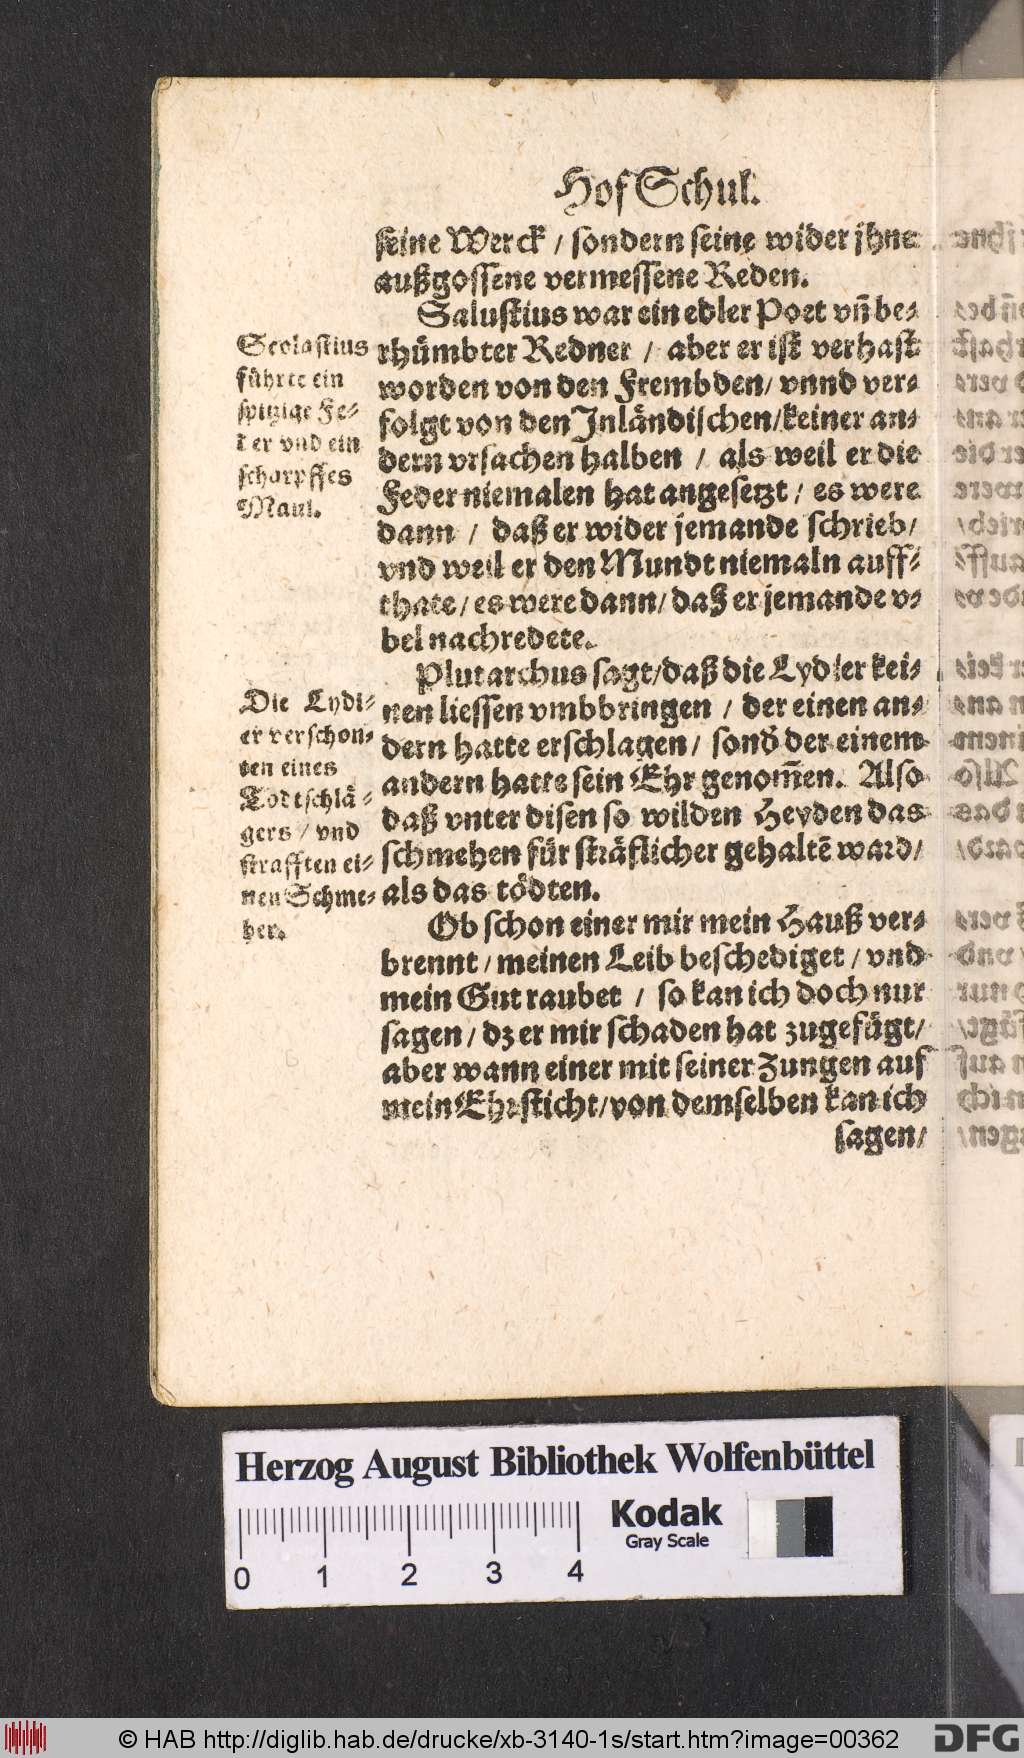 Hof Schul.
seine Werck / sondern seine wider jhne
außgossene vermessene Reden.
Salustius war ein edler Poet vñ be-
rhümbter Redner / aber er ist verhast
worden von den Frembden / vnnd ver-
folgt von den Inländischen / keiner an-
dern vrsachen halben / als weil er die
Feder niemalen hat angesetzt / es were
dann / daß er wider jemande schrieb /
vnd weil er den Mundt niemaln auff-
thate / es were dann / daß er jemande v-
bel nachredete.
Plutarchus sagt / daß die Lydier kei-
nen liessen vmbbringen / der einen an-
dern hatte erschlagen / sond̃ der einem
andern hatte sein Ehr genom̃en. Also
daß vnter disen so wilden Heyden das
schmehen für sträflicher gehaltẽ ward /
als das tödten.
Ob schon einer mir mein Hauß ver-
brennt / meinen Leib beschediget / vnd
mein Gut raubet / so kan ich doch nur
sagen / dz er mir schaden hat zugefügt /
aber wann einer mit seiner Zungen auf
mein Ehr sticht / von demselben kan ich
sagen /
Scolastius
führte ein
spitzige Fe-
der vnd ein
scharpffes
Maul.
Die Lydi-
er verschon-
ten eines
Todtschlä-
gers / vnd
strafften ei-
nen Schme-
her.
Herzog August Bibliothek Wolfenbüttel
Kodak
Gray Scale
0 1 2 3 4
© HAB http://diglib.hab.de/drucke/xb-3140-1s/start.htm?image=00362
DFG